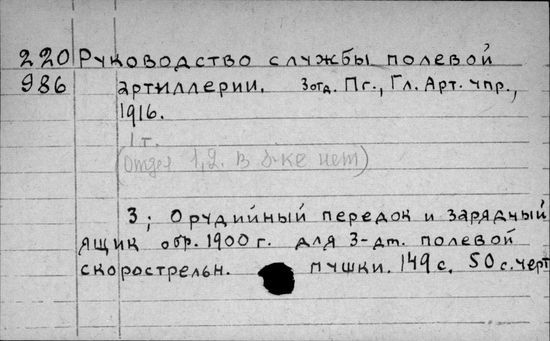 220 Руководство службы полевой
986 артиллерии. 3отд. Пг., Гл. Арт. упр.,
1916.
1 т.
(Отдел 1,2. в б-ке нет)
3; Орудийный передок и зарядный
ящик обр. 1900 г. для 3-дт. полевой
скорострельн. пушки. 149 с. 50 с. черт